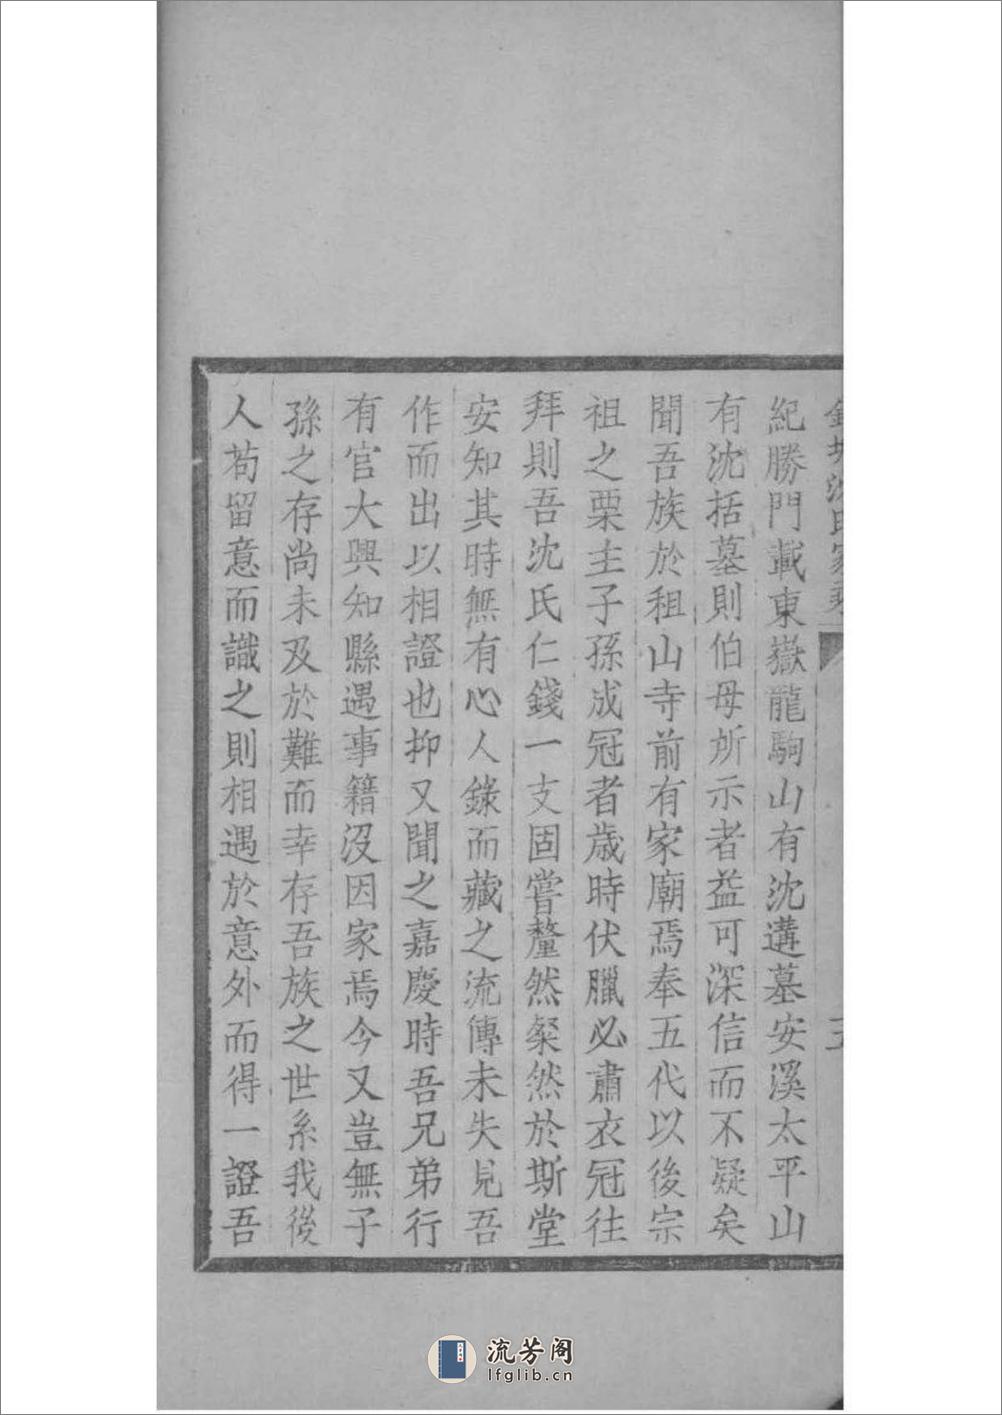 紀勝門載東嶽龍駒山有沈遘墓安溪太平山
有沈括墓則伯母所示者益可深信而不疑矣
聞吾族於祖山寺前有家廟焉奉五代以後宗
祖之栗主子孫成冠者歲時伏臘必肅衣冠往
拜則吾沈氏仁錢一支固嘗釐然粲然於斯堂
安知其時無有心人錄而藏之流傳未失見吾
作而出以相證也抑又聞之嘉慶時吾兄弟行
有官大興知縣遇事籍沒因家焉今又豈無子
孫之存尚未及於難而幸存吾族之世系我後
人苟留意而識之則相遇於意外而得一證吾
流芳阁
lfglib.cn